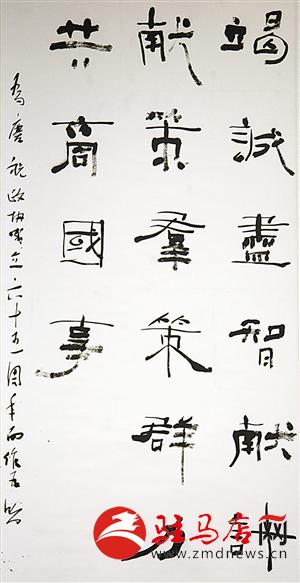 竭誠盡智献
献策羣策群力
共商國事
為慶祝政協成立六十五周年而作
驻马店网
www.zmdnews.cn